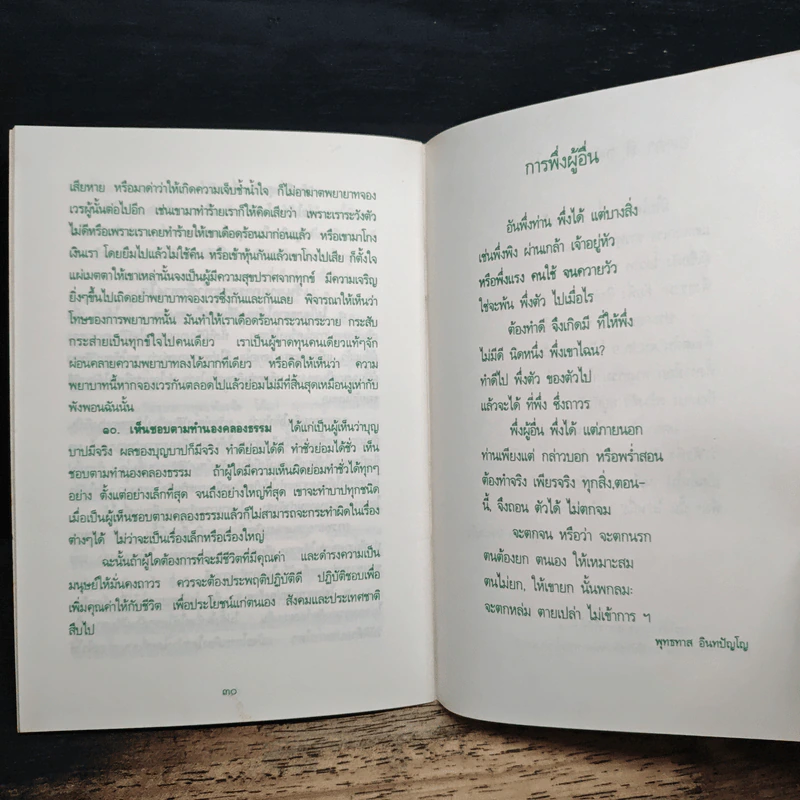 เสียหาย หรือมาด่าว่าให้เกิดความเจ็บช้ำน้ำใจ ก็ไม่อาฆาตพยายาทจอง
เวรผู้นั้นต่อไปอีก เช่นเขามาทำร้ายเราก็ให้คิดเสียว่า เพราะเราระวังตัว
ไม่ดีหรือเพราะเราเคยทำร้ายให้เขาเดือดร้อนมาก่อนแล้ว หรือเขามาโกง
เงินเรา โดยยืมไปแล้วไม่ใช้คืน หรือเข้าหุ้นกันแล้วเขาโกงไปเสีย ก็ตั้งใจ
แผ่เมตตาให้เขาเหล่านั้นจงเป็นผู้มีความสุขปราศจากทุกข์ มีความเจริญ
ยิ่งๆขึ้นไปเถิดอย่าพยาบาทจองเวรซึ่งกันและกันเลย พิจารณาให้เห็นว่า
โทษของการพยาบาทนั้น มันทำให้เราเดือดร้อนกระวนกระวาย กระสับ
กระส่ายเป็นทุกข์ใจไปคนเดียว เราเป็นผู้ขาดทุนคนเดียวแท้ๆจัก
ผ่อนคลายความพยาบาทลงได้มากทีเดียว หรือคิดให้เห็นว่า ความ
พยาบาทนี้หากจองเวรกันตลอดไปแล้วย่อมไม่มีที่สิ้นสุดเหมือนงูเห่ากับ
พังพอนฉันนั้น
๑๐. เห็นชอบตามทำนองคลองธรรม ได้แก่เป็นผู้เห็นว่าบุญ
บาปมีจริง ผลของบุญบาปก็มีจริง ทำดีย่อมได้ดี ทำชั่วย่อมได้ชั่ว เห็น
ชอบตามทำนองคลองธรรม ถ้าผู้ใดมีความเห็นผิดย่อมทำชั่วได้ทุกๆ
อย่าง ตั้งแต่อย่างเล็กที่สุด จนถึงอย่างใหญ่ที่สุด เขาจะทำบาปทุกชนิด
เมื่อเป็นผู้เห็นชอบตามคลองธรรมแล้วก็ไม่สามารถจะกระทำผิดในเรื่อง
ต่างๆได้ ไม่ว่าจะเป็นเรื่องเล็กหรือเรื่องใหญ่
ฉะนั้นถ้าผู้ใดต้องการที่จะมีชีวิตที่มีคุณค่า และดำรงความเป็น
มนุษย์ให้มั่นคงถาวร ควรจะต้องประพฤติปฏิบัติดี ปฏิบัติชอบเพื่อ
เพิ่มคุณค่าให้กับชีวิต เพื่อประโยชน์แก่ตนเอง สังคมและประเทศชาติ
สืบไป
๓๑
การพึ่งผู้อื่น
อันพึ่งท่าน พึ่งได้ แต่บางสิ่ง
เช่นพึ่งพิง ผ่านเกล้า เจ้าอยู่หัว
หรือพึ่งแรง คนใช้ จนควายวัว
ใช่จะพ้น พึ่งตัว ไปเมื่อไร
ต้องทำดี จึงเกิดมี ที่ให้พึ่ง
ไม่มีดี นิดหนึ่ง พึ่งเขาไฉน?
ทำดีไป พึ่งตัว ของตัวไป
แล้วจะได้ ที่พึ่ง ซึ่งถาวร
พึ่งผู้อื่น พึ่งได้ แต่ภายนอก
ท่านเพียงแต่ กล่าวบอก หรือพร่ำสอน
ต้องทำจริง เพียรจริง ทุกสิ่ง,ตอน-
นี้, จึงถอน ตัวได้ ไม่ตกจม
จะตกจน หรือว่า จะตกนรก
ตนต้องยก ตนเอง ให้เหมาะสม
ตนไม่ยก, ให้เขายก นั้นพกลม:
จะตกหล่ม ตายเปล่า ไม่เข้าการ ฯ
พุทธทาส อินทปัญโญ